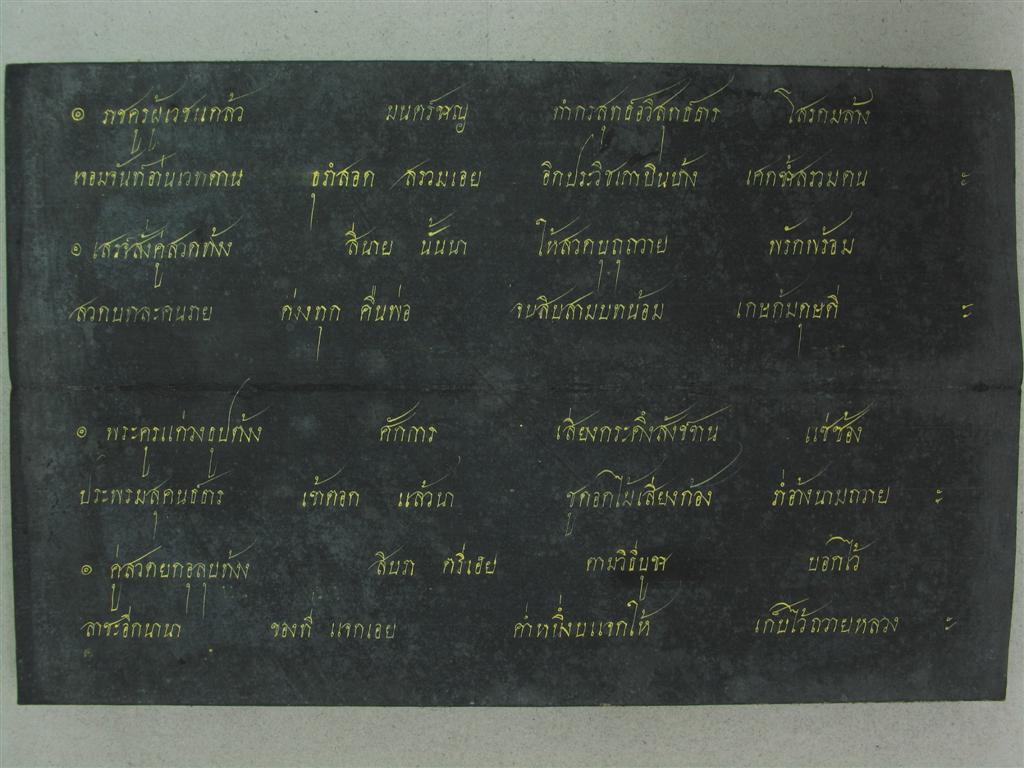 ๏ ราชครูผู้เวชแกล้ว มนตร์ชาญ ทำกรสุทธ์อวิสุทธ์ธาร โสรถมล้าง
จอมจันท์อ่านเวทดาน ธุรำสอด สรวมเอย อีกประวิชเกาปีนบ้าง เศกซ้ำสรวมตน ะ
๏ เสรจสั่งคู่สวดทั้งง สี่นาย นั้นนา ให้สวดบุถุถวาย พรักพร้อม
สวดบทละคนราย ต่งงทุก คืนพ่อ จบสิบสามบทน้อม เกษก้มดุษดี ะ
๏ พระครูแก่วงธูปต้งง ศักการ เสี่ยงกระดึงสังขขาน แซ่ซ้อง
ประพรมสุคนธ์ธาร เข้าตอก แล้วนา ชูดอกไม้เสียงก้อง ภ่ออ้างนามถวาย ะ
๏ คู่สวดยกอุลุบท้งง สิบรา ตรีเอย ตามวิธีบูช บอกไว้
ลาชะอีกนานา ของที่ แจกเอย ค่ำหนึ่งบแจกให้ เก็บไว้ถวายหลวง ะ